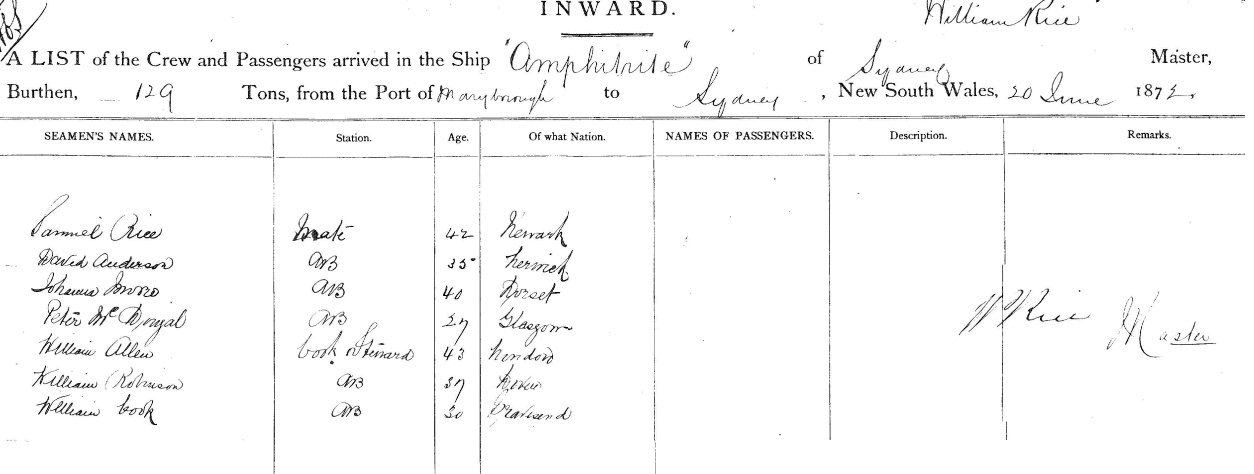 INWARD.
William Rice
A LIST of the Crew and Passengers arrived in the Ship "Amphitrite" of Sydney Master,
Burthen, 129 Tons, from the Port of Maryborough to Sydney, New South Wales, 20 June 1872.
SEAMEN'S NAMES. Station. Age. Of what Nation. NAMES OF PASSENGERS. Description. Remarks.
Samuel Rice Mate 42 Newark
David Anderson AB 35
AB 40 Dorset
Peter McDougal AB 27 Glasgow
William Allen Cook & Steward 43 London
William Robinson AB 37 Dover
William Cook AB 30 Gravesend
W Rice Master